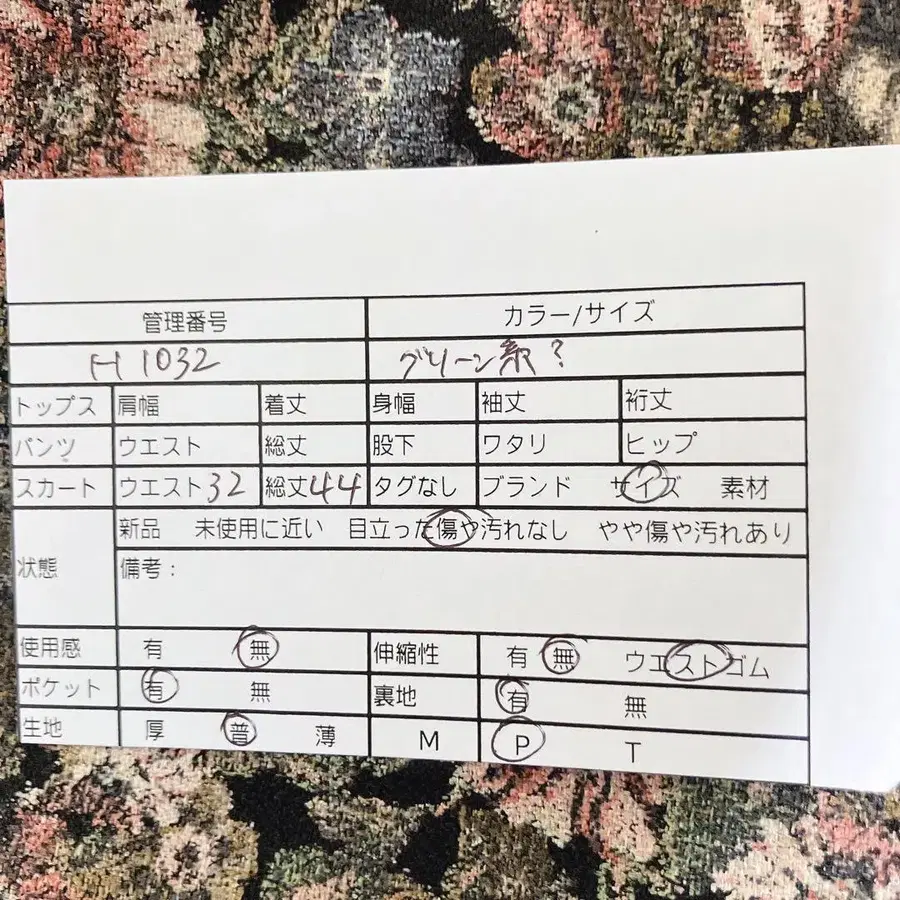 管理番号 カラー/サイズ
H 1032 グリーン系?
トップス 肩幅 着丈 身幅 袖丈 裄丈
パンツ ウエスト 総丈 股下 ワタリ ヒップ
スカート ウエスト32 総丈44 タグなし ブランド サイズ 素材
状態 新品 未使用に近い 目立った傷や汚れなし やや傷や汚れあり
備考:
使用感 有 無 伸縮性 有 無 ウエストゴム
ポケット 有 無 裏地 有 無
生地 厚 普 薄 M P T